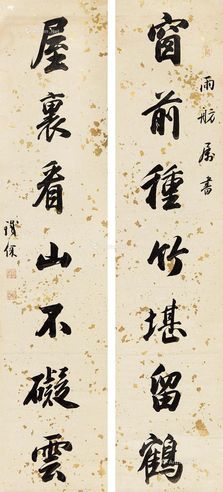 雨舫屬書
窗前種竹堪留鶴
屋裏看山不礙雲
鐵保